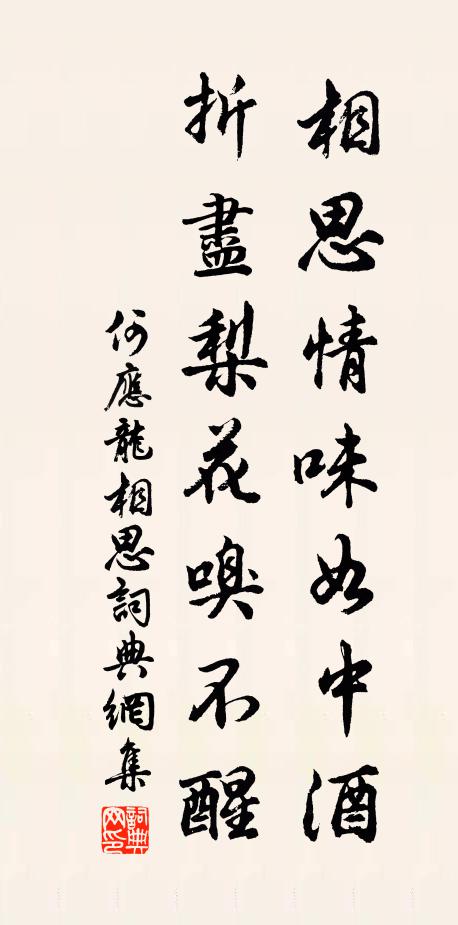 相思情味如中酒
折盡梨花嗅不醒
何應龍相思詞典網集
詞典網印